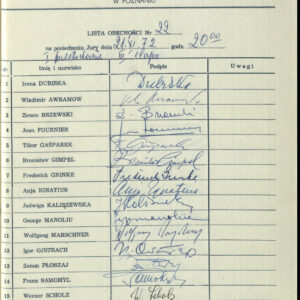 W POZNANIU
LISTA OBECNOŚCI Nr 22
na posiedzeniu Jury dnia 21.XI.72 godz. 20.00
Imię i nazwisko Podpis Uwagi
1 Irena DUBISKA Dubiska
2 Wladimir AWRAMOW
3 Zenon BRZEWSKI
4 Jean FOURNIER
5 Tibor GAŠPAREK Gašparek
6 Bronisław GIMPEL Bronisław Gimpel
7 Frederick GRINKE Frederick Grinke
8 Anja IGNATIUS Anja Ignatius
9 Jadwiga KALISZEWSKA
10 George MANOLIU
11 Wolfgang MARSCHNER
12 Igor OJSTRACH
13 Zenon PŁOSZAJ
14 Franz SAMOHYL Samohyl
15 Werner SCHOLZ W. Scholz